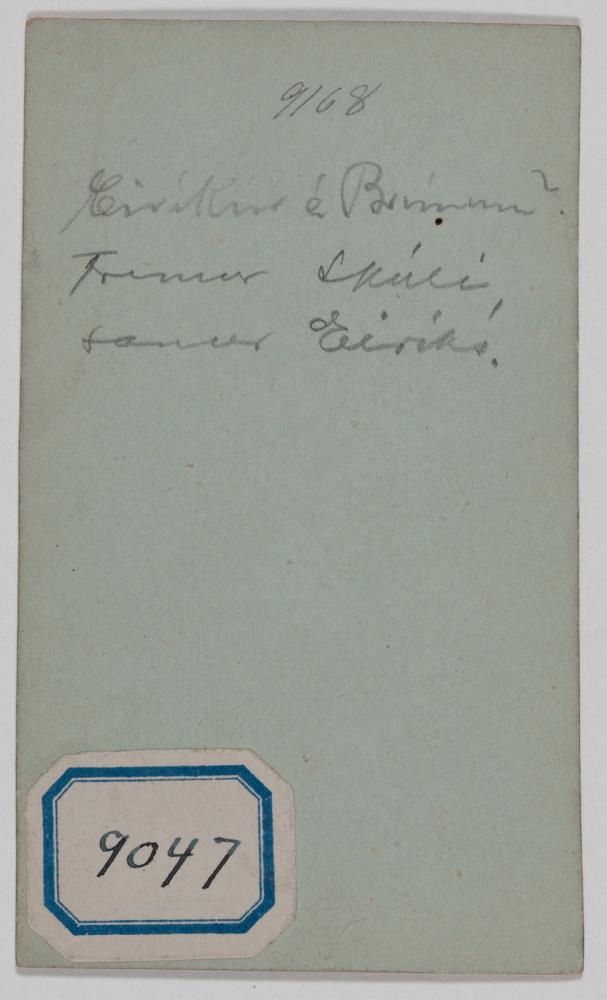 9168
Eiríkur á Brúnum?
Fremur Skúli,
sonur Eiríks.
9047